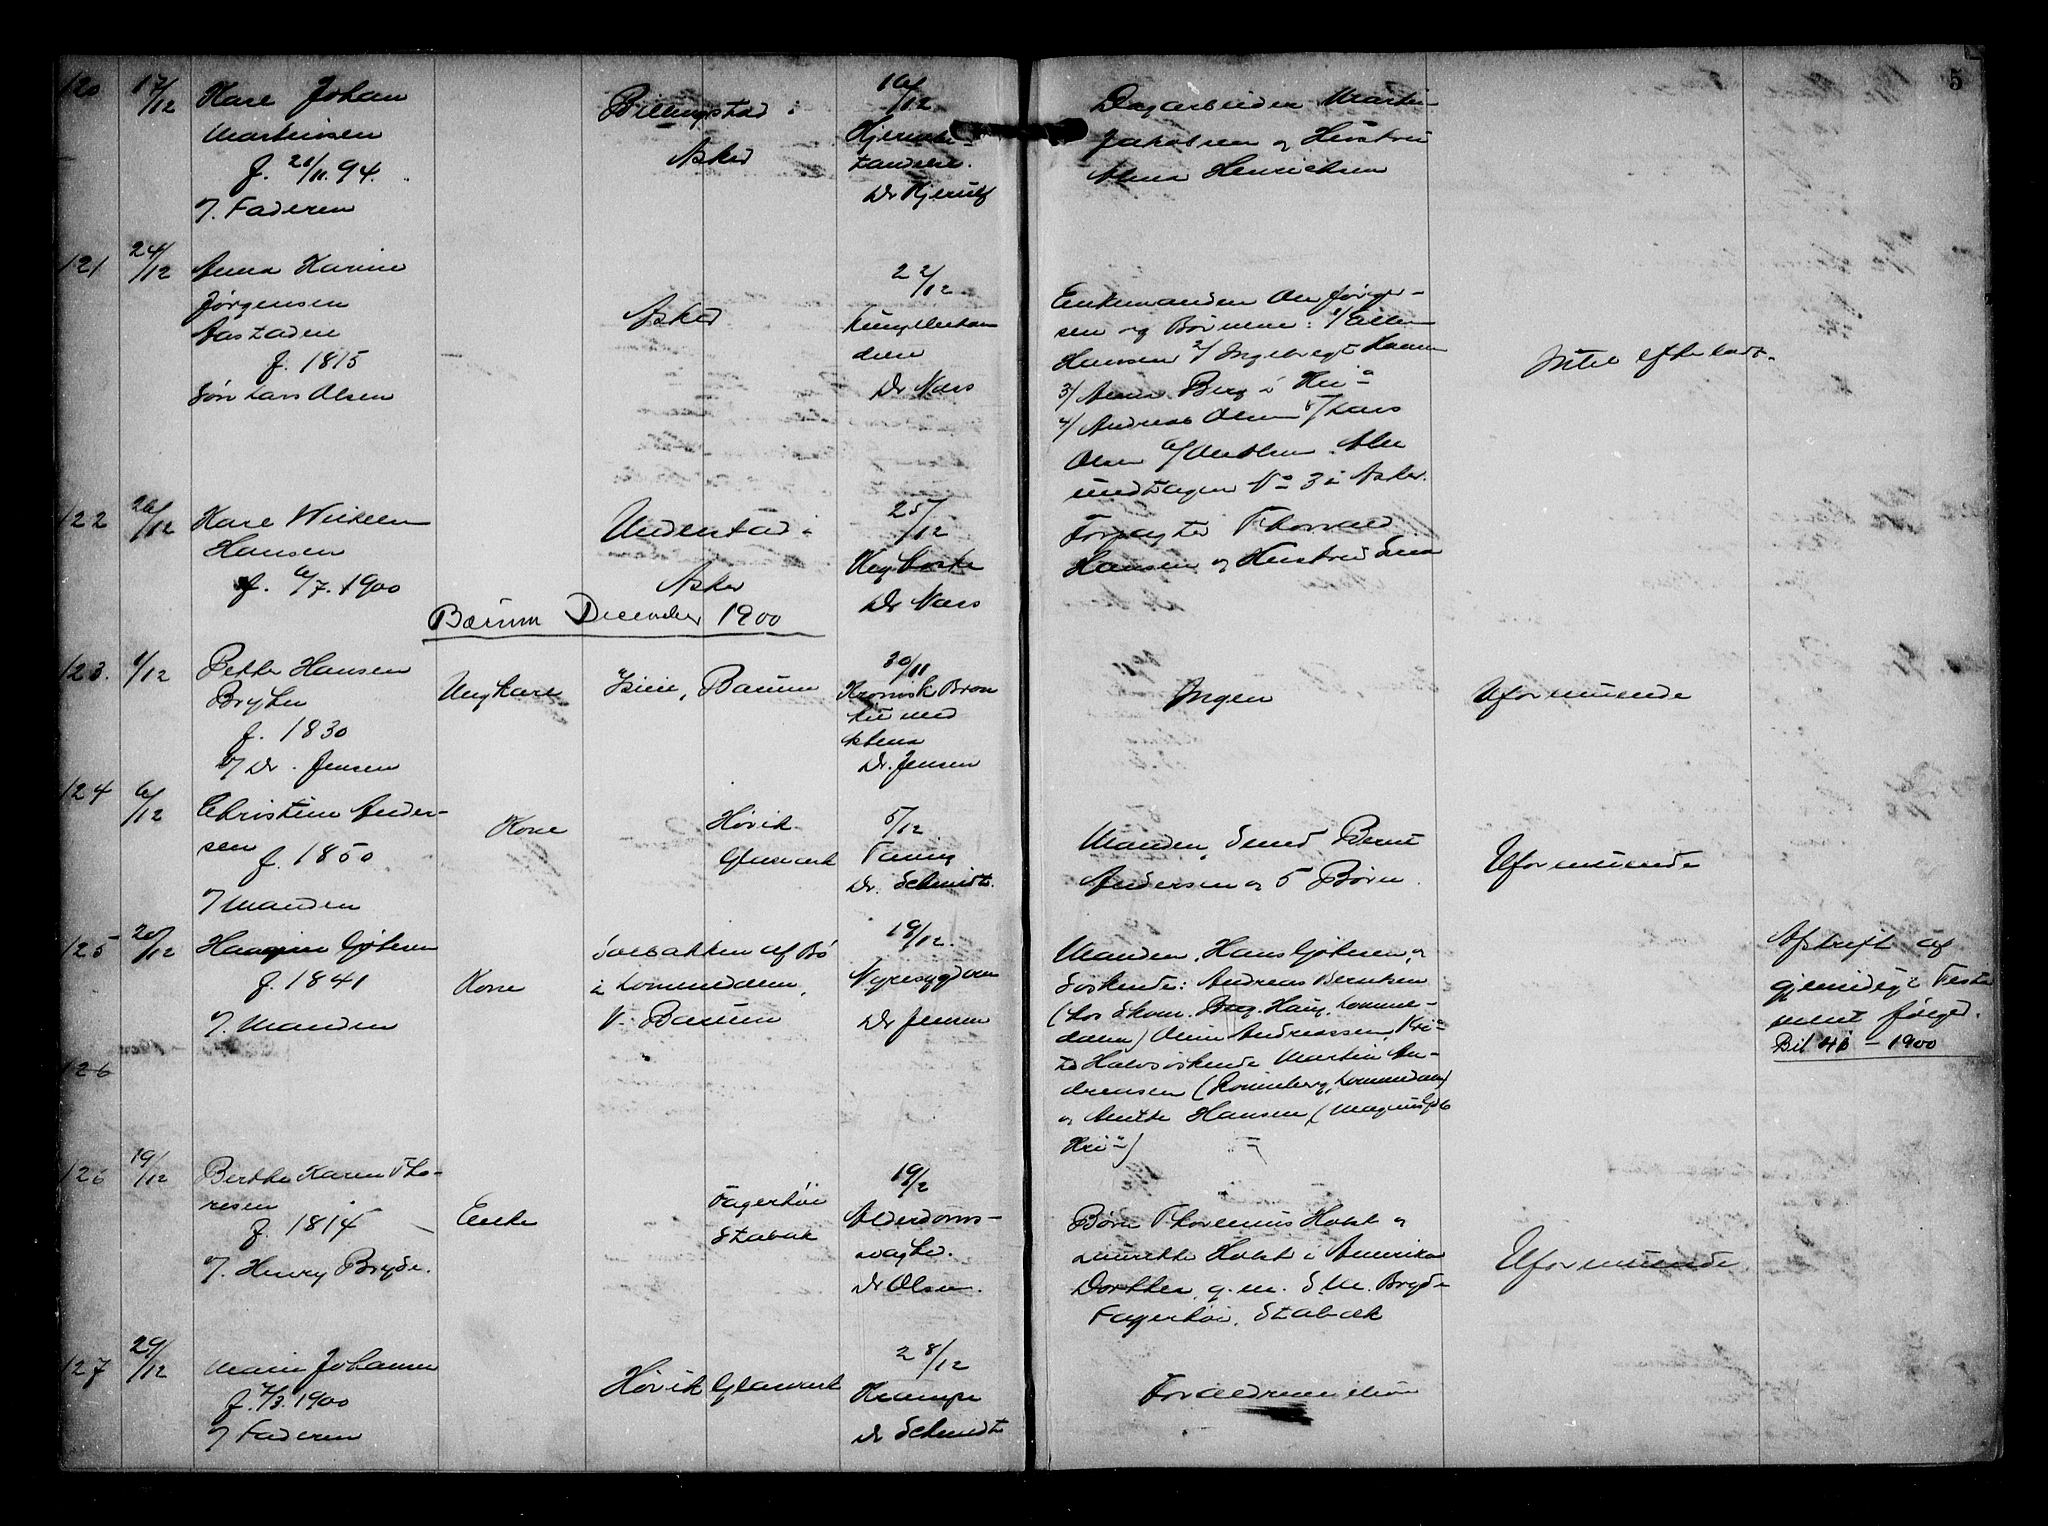 5
120 17/12 Karl Johan
Martinsen
f. 28/11. 94.
v/ Faderen
Billingstad i
Asker
16/12
Dr Hjerulf
Dagarbeider Martin
Jakobsen og Hustru
Anna Henricksen
121 24/12 Anna Karine
Jørgensen
Aastaden
f. 1815
Søn Lars Olsen
Asker
22/12
Dr Næss
Enkemanden Ole Jørgen-
sen og Børnene: 1/ Ellen
Hansen 2/ Ingebregt
3/ Anna Berg i Kria
4/ Andreas Olsen 5/ Lars
Olsen 6/ Ole Olsen. Alle
undtagen No 3 i Asker.
Intet efterladt.
122 26/12 Karl Wilhelm
Hansen
f. 6/7. 1900
i
Asker
25/12
Kighoste
Dr Næss
Forpagter Thorvald
Hansen og Hustru
Bærum December 1900
123. 1/12 Petter Hansen
Bryhn
f. 1830
v/ Dr. Jensen
Ungkarl
Bærum
30/11
Kronisk Bron
kit med
Astma
Dr. Jensen
Ingen
Uformuende
124 6/12 Christine Ander-
sen f. 1850
v/ Manden
Kone
Høvik
Glasværk
5/12
Tæring
Dr. Schmidt.
Manden, Smed Bernt
Andersen og 5 Børn.
Uformuende
125 20/12
f. 1841
v/. Manden
Kone
Solbakken af Bø
i Lommedalen,
V. Bærum
19/12.
Nyresygdom
Dr Jensen
Manden, Hans og
Søskende: Andreas Berntsen
(hos Skom. Haug, Lomme-
dalen) Andreassen, Kria
Halvsøskende Martin An-
dreasen (Rønneberg, Lommedalen)
og Anette Hansen, (Magnus G. 6
Kria)
Afskrift af
gjensidigt Testa
ment følger.
Bil 1900
126
126 19/12 Berthe Karen Tho-
resen
f. 1814
v/. Henry Bryde.
Enke
Fagerhøi
Stabæk
19/12
Alderdoms-
svaghed.
Dr Olsen.
Børn Holst og
Laurette Holst i Amerika
Dorthea, g. m. S. M. Bryde
Fagerhøi, Stabæk
Uformuende.
127 29/12 Marie Johansen
f. 7/3. 1900
v/ Faderen
Høvik Glasværk
28/12
Krampe
Dr Schmidt
Forældrene